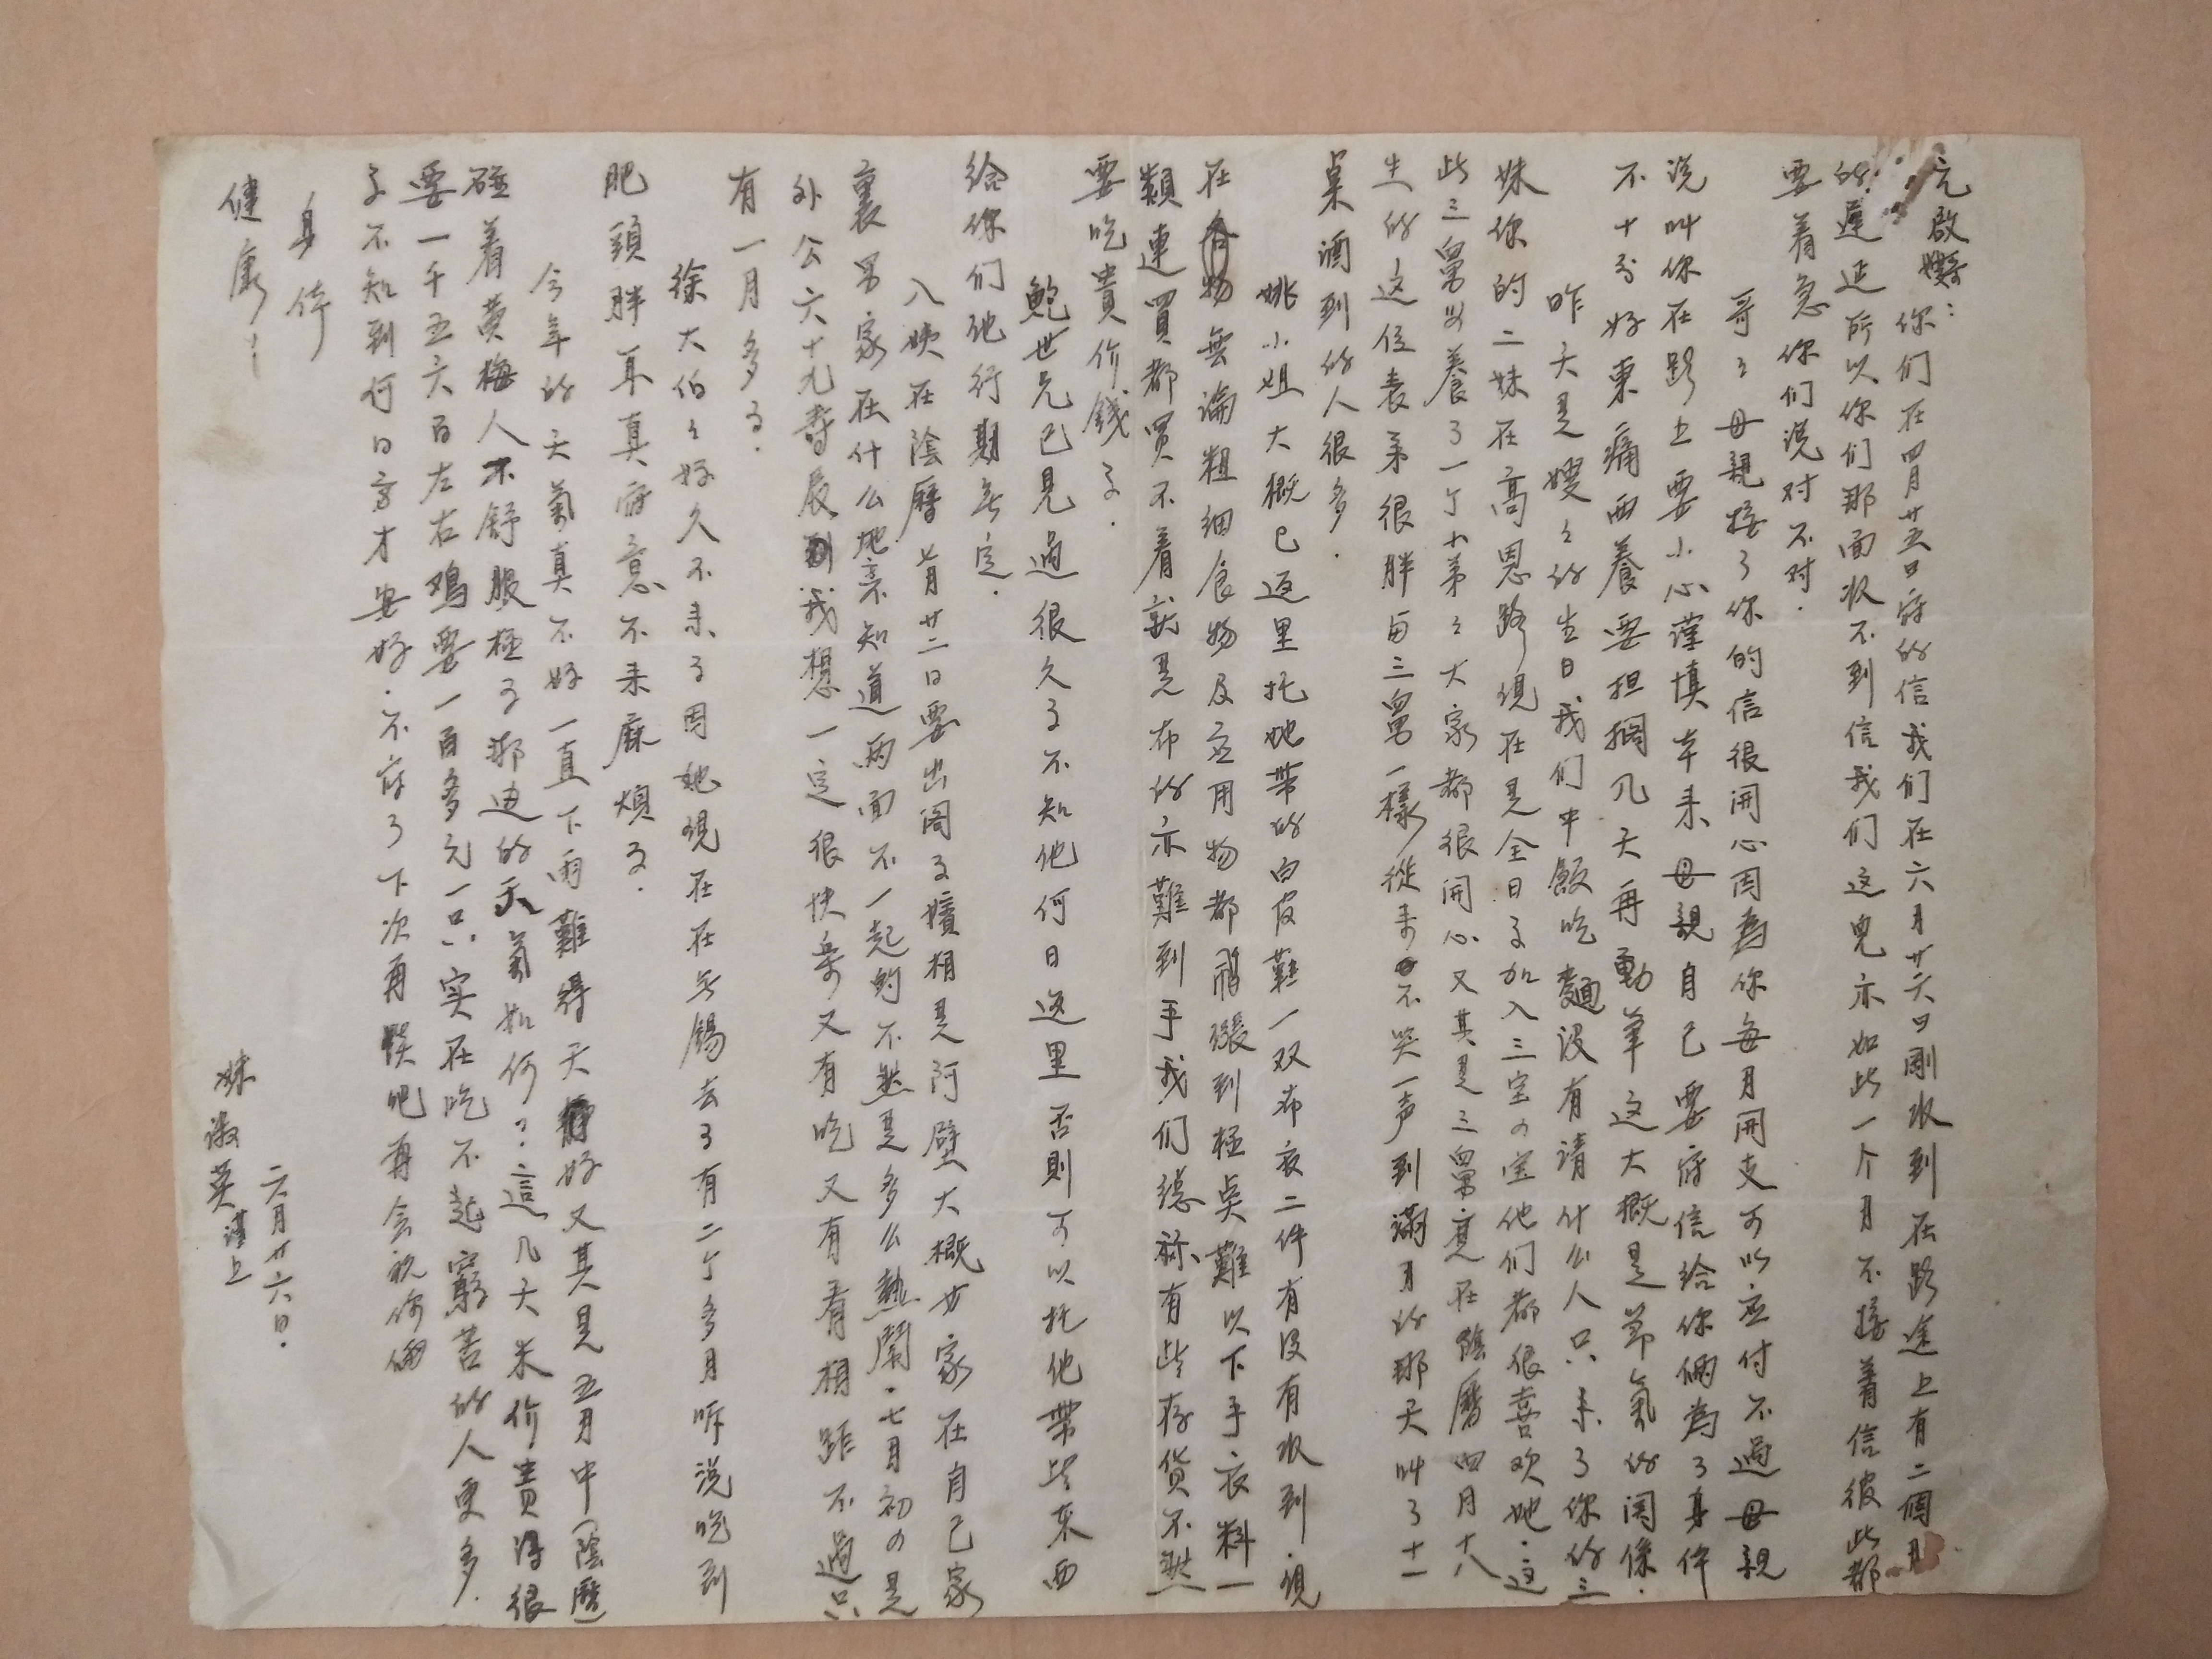 元啟嫂哥:
你们在四月廿五日寄的信我们在六月廿六日剛收到在路途上有二個月
的遲延所以你们那面收不到信我们这兒亦如此一个月不接着信彼此都
要着急你们说对不对.
哥々母親接了你的信很開心因為你每月開支可以应付不過母親
说叫你在路上要小心謹慎本来母親自己要寄信给你俩為了身体
不十分好東痛西養要担擱几天再動筆这大概是節氣的関係.
昨天是嫂々的生日我们中飯吃麵没有请什么人只来了你的三
妹你的二妹在高恩路現在是全日了加入三宝の宝他们都很喜欢她.这
此三舅父養了一个小弟々大家都很開心又其是三舅竟在陰曆四月十八
生的这位表弟很胖与三舅一樣從来不哭一声到滿月的那天叫了十一
桌酒到的人很多.
姚小姐大概已返里托她带的白皮鞋一双布衣二件有没有收到.現
在各物無論粗细食物及应用物都緊張到極点難以下手衣料一
類連買都買不着就是布的亦難到手我们總算有些存貨不然
要吃貴价錢了.
鮑世兄已見過很久了不知他何日返里否則可以托他帶些東西
给你们他行期無定.
八姨在陰曆七月廿二日要出阁了嬪相是阿璧大概女家在自己家
裏男家在什么地方不知道兩面不一起的不然是多么熱鬧.七月初の是
外公六十九壽辰到我想一定很快樂又有吃又有看相距不過只
有一月多了.
徐大伯々好久不来了因她現在在无锡去了有二个多月听说吃到
肥頭胖耳真寫意不来麻煩了.
今年的天氣真不好一直下雨難得天好又其是五月中(陰曆)
碰着黄梅人不舒服極了那边的天氣如何?這几天米价貴得很
要一千五六百左右鸡要一百多元一只.实在吃不起窮苦的人更多.
了不知到何日方才安好.不寫了下次再談吧再会祝你俩
身体
健康!
妹淑英謹上
六月廿六日.